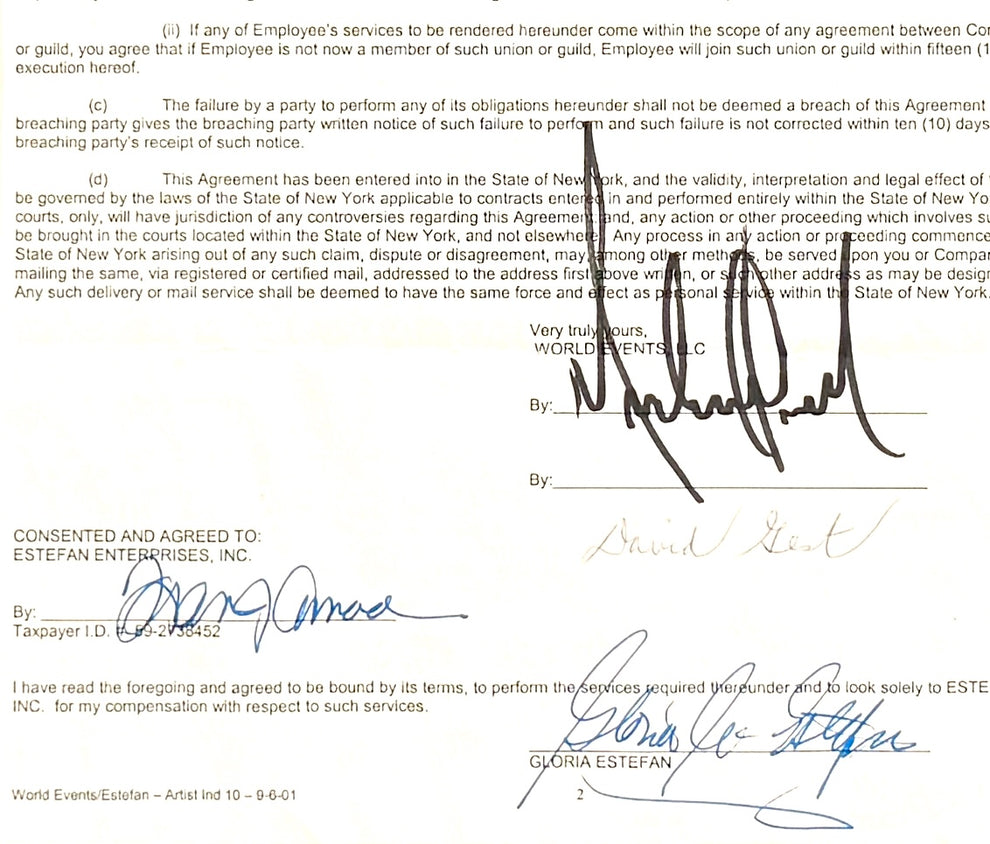 (ii) If any of Employee's services to be rendered hereunder come within the scope of any agreement between Con
or guild, you agree that if Employee is not now a member of such union or guild, Employee will join such union or guild within fifteen (1
execution hereof.
(c) The failure by a party to perform any of its obligations hereunder shall not be deemed a breach of this Agreement
breaching party gives the breaching party written notice of such failure to perform and such failure is not corrected within ten (10) days
breaching party's receipt of such notice.
(d) This Agreement has been entered into in the State of New York, and the validity, interpretation and legal effect of
be governed by the laws of the State of New York applicable to contracts entered in and performed entirely within the State of New Yo
courts, only, will have jurisdiction of any controversies regarding this Agreement and, any action or other proceeding which involves su
be brought in the courts located within the State of New York, and not elsewhere. Any process in any action or proceeding commence
State of New York arising out of any such claim, dispute or disagreement, may, among other methods, be served upon you or Compan
mailing the same, via registered or certified mail, addressed to the address first above written, or such other address as may be design
Any such delivery or mail service shall be deemed to have the same force and effect as personal service within the State of New York.
Very truly yours,
WORLD EVENTS, LLC
By:
By:
David Gest
CONSENTED AND AGREED TO:
ESTEFAN ENTERPRISES, INC.
By:
Taxpayer I.D. #
I have read the foregoing and agreed to be bound by its terms, to perform the services required thereunder and to look solely to ESTE
INC. for my compensation with respect to such services.
Gloria Estefan
GLORIA ESTEFAN
World Events/Estefan – Artist Ind 10 – 9-6-01 2